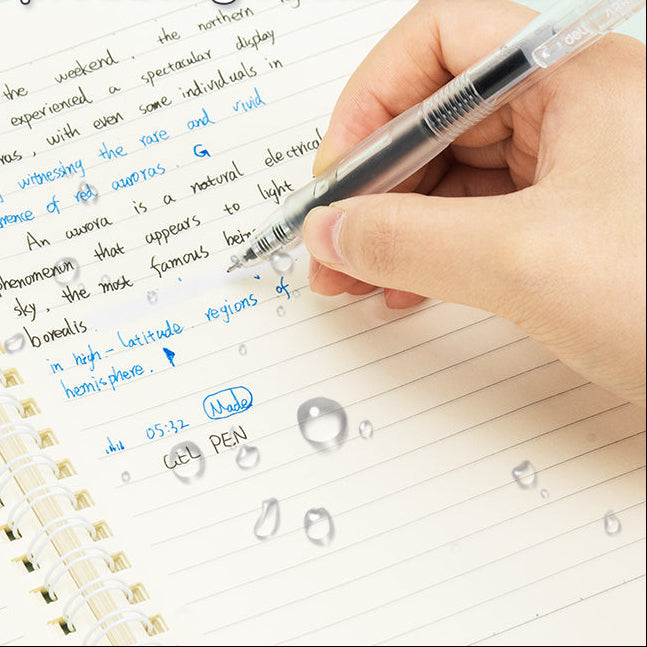 the weekend, the northern
experienced a spectacular display
ras, with even some individuals in
witnessing the rare and vivid
rence of red auroras. G
An aurora is a natural electrical
phenomenun that appears to light
sky, the most famous bein
borealis
in high-latitude regions of
hemisphere.
05:32 Made
GEL PEN